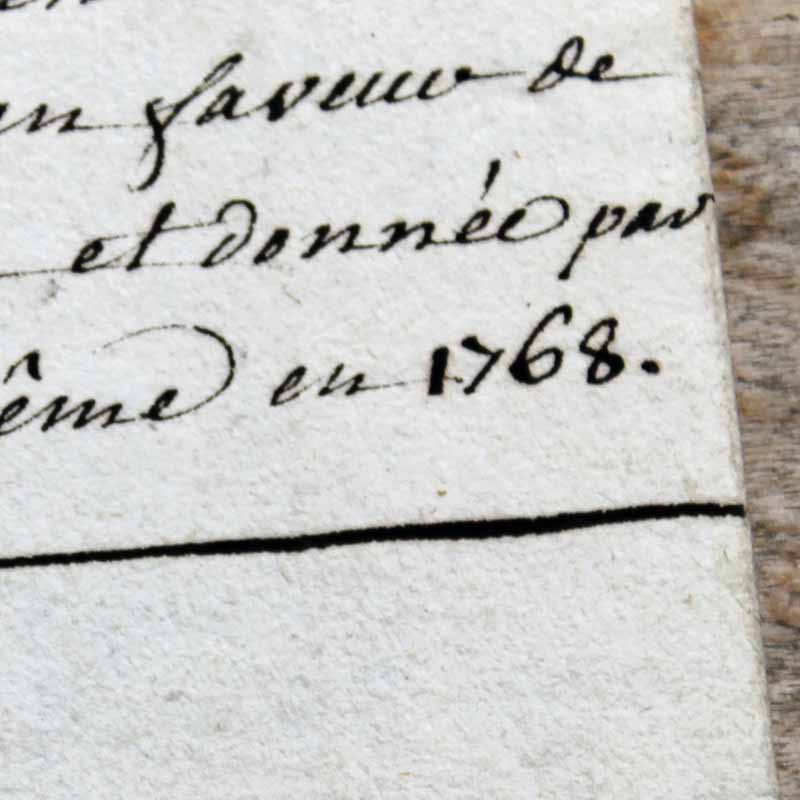 faveur de
et donnée par
ême en 1768.